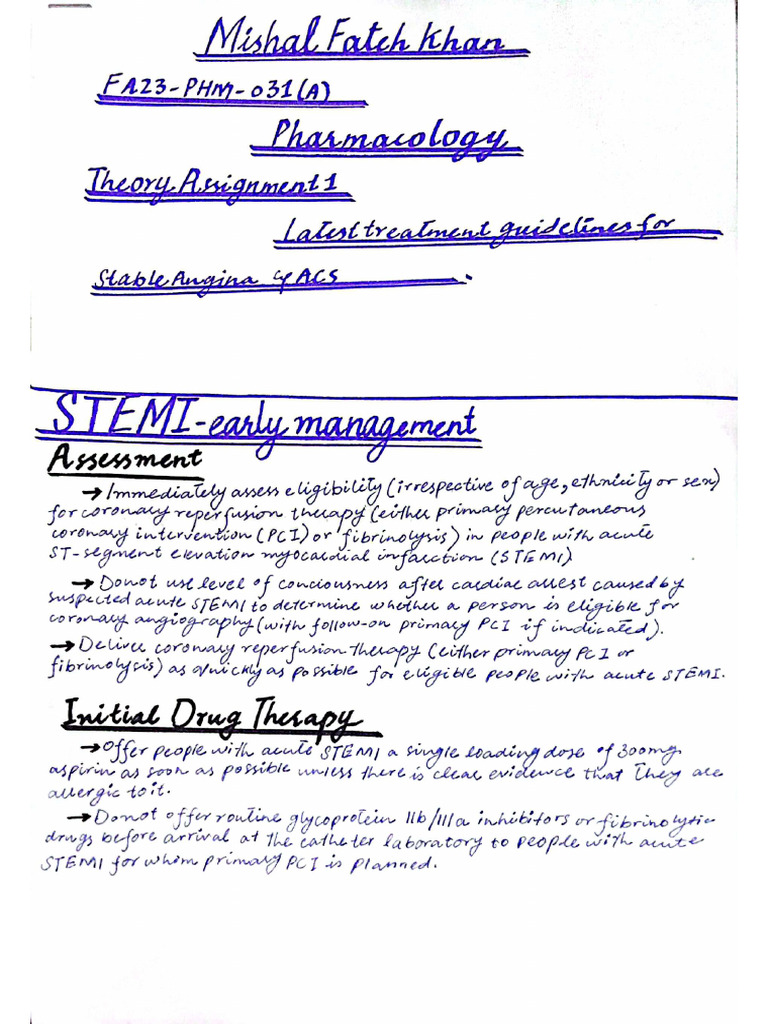 Mishal Fateh Khan
FA23-PHM-031(A)
Pharmacology
Theory Assignment 1
Latest treatment guidelines for
Stable Angina & ACS .
STEMI-early management
Assessment
→ Immediately assess eligibility (irrespective of age, ethnicity or sex)
for coronary reperfusion therapy (either primary percutaneous
coronary intervention (PCI) or fibrinolysis) in people with acute
ST-segment elevation myocardial infarction (STEMI).
→ Donot use level of conciousness after cardiac arrest caused by
suspected acute STEMI to determine whether a person is eligible for
coronary angiography (with follow-on primary PCI if indicated).
→ Deliver coronary reperfusion therapy (either primary PCI or
fibrinolysis) as quickly as possible for eligible people with acute STEMI.
Initial Drug Therapy
→ Offer people with acute STEMI a single loading dose of 300mg
aspirin as soon as possible unless there is clear evidence that they are
allergic to it.
→ Donot offer routine glycoprotein IIb/IIIa inhibitors or fibrinolytic
drugs before arrival at the catheter laboratory to people with acute
STEMI for whom primary PCI is planned.